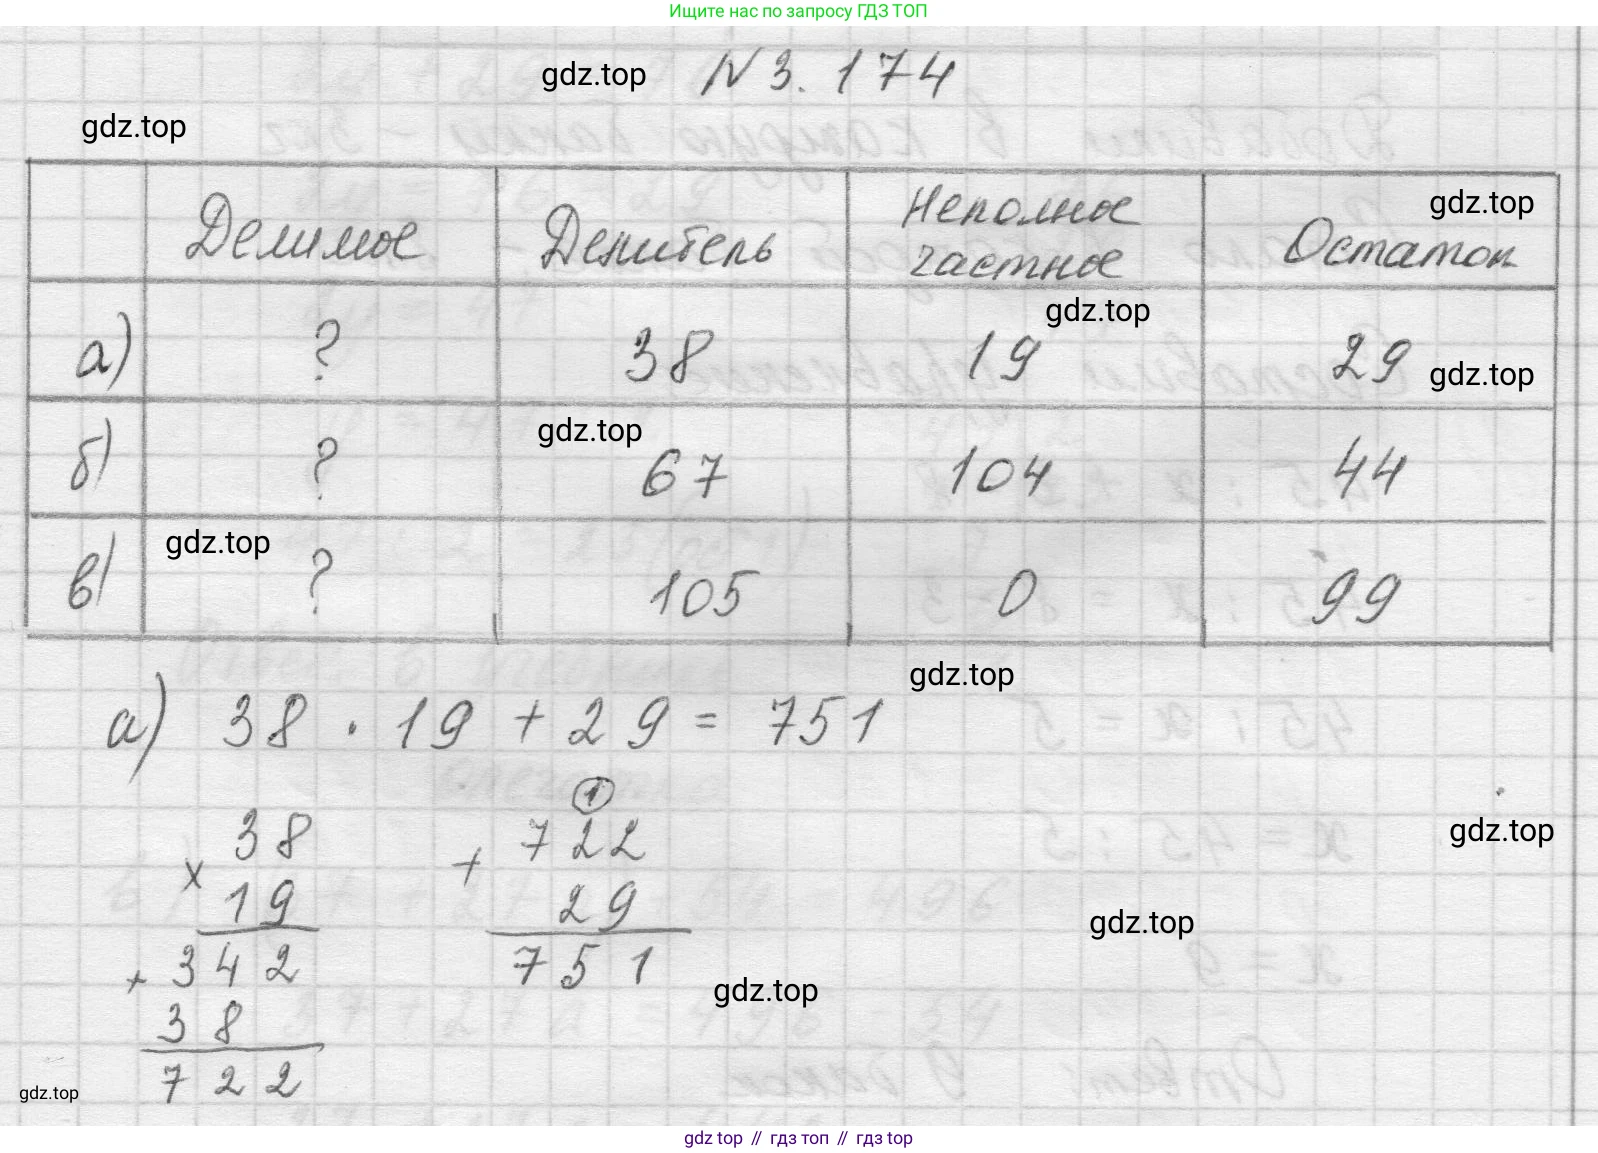 Ищите нас по запросу ГДЗ ТОП
gdz.top № 3.174
gdz.top
Делимое Делитель Неполное частное Остаток gdz.top
а) ? 38 19 29
gdz.top gdz.top
б) ? 67 104 44
gdz.top
в) ? 105 0 99
gdz.top
gdz.top
а) 38 · 19 + 29 = 751
38
× 19
+ 342
38
722
1
722
+ 29
751
gdz.top
gdz.top
gdz.top
gdz.top
gdz top // гдз топ // gdz top